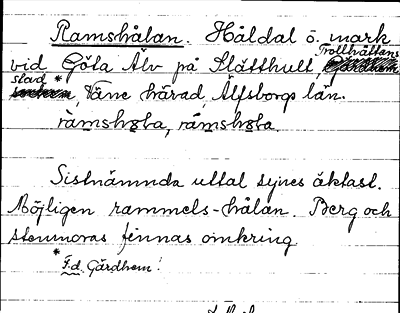 Ramshålan. Håldal ö. mark
vid Göta Älv på Slätthult, Trollhättans
stad *, Väne härad, Älfsborgs län.
Sistnämnda uttal synes äktast.
Möjligen rammels-hålan. Berg och
stenmoras finnas omkring
* F.d. Gärdhem!